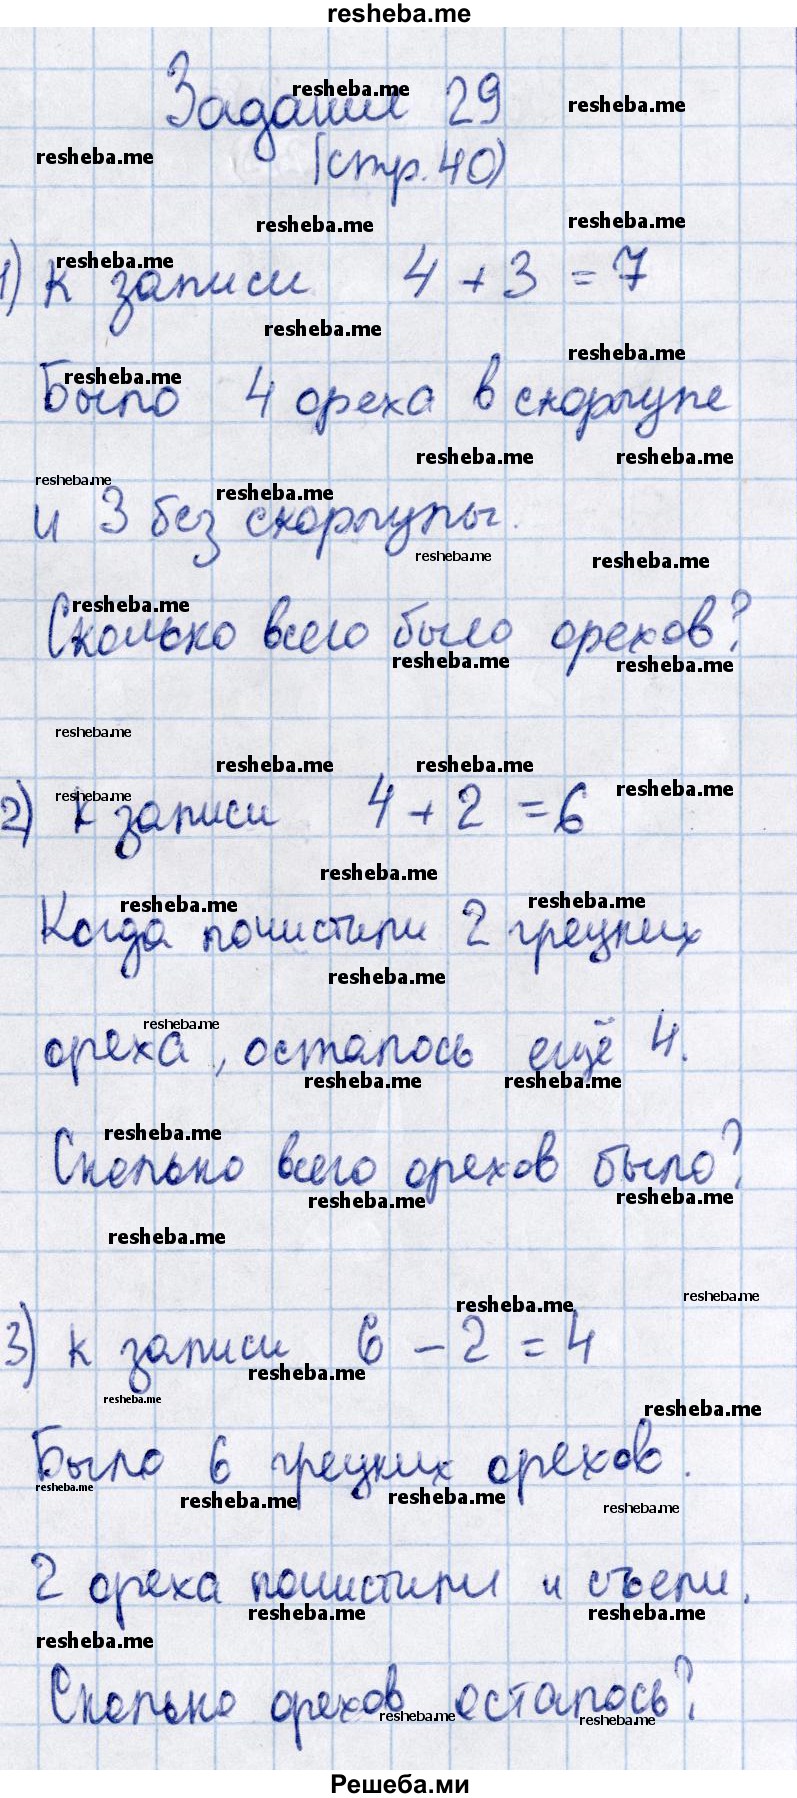 resheba.me
Задание 29
(стр.40)
1) к записи 4 + 3 = 7
Было 4 ореха в скорлупе
и 3 без скорлупы.
Сколько всего было орехов?
2) к записи 4 + 2 = 6
Когда почистили 2 грецких
ореха, осталось ещё 4.
Сколько всего орехов было?
3) к записи 6 - 2 = 4
Было 6 грецких орехов.
2 ореха почистили и съели.
Сколько орехов осталось?
Решеба.ми